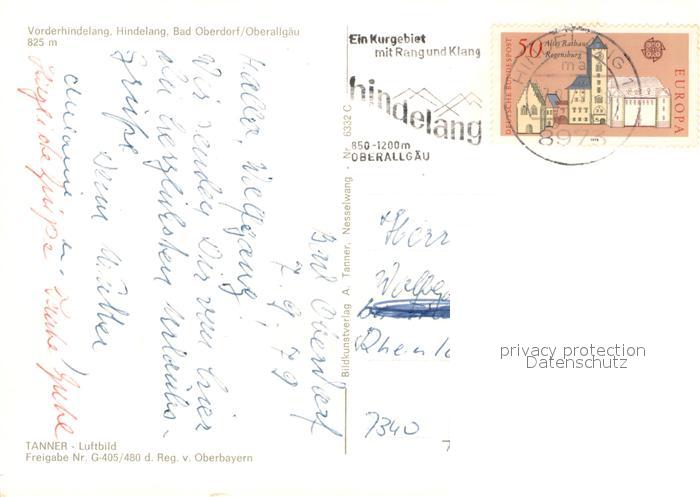 Vorderhindelang, Hindelang, Bad Oberdorf/Oberallgäu
825 m
Bad Oberdorf
7. 9. 79
Hallo, Wolfgang!
Wir senden Dir von hier
die herzlichsten Urlaubs-
grüße
Dein Walter
Christiane u.
Herzliche Grüße
TANNER - Luftbild
Freigabe Nr. G-405/480 d. Reg. v. Oberbayern
Bildkunstverlag A. Tanner, Nesselwang - Nr. 6332 C
Ein Kurgebiet
mit Rang und Klang
hindelang
850 -1200m
OBERALLGÄU
DEUTSCHE BUNDESPOST
50
Altes Rathaus
Regensburg
EUROPA
HINDELANG 1
8973
Herr
7340
privacy protection
Datenschutz